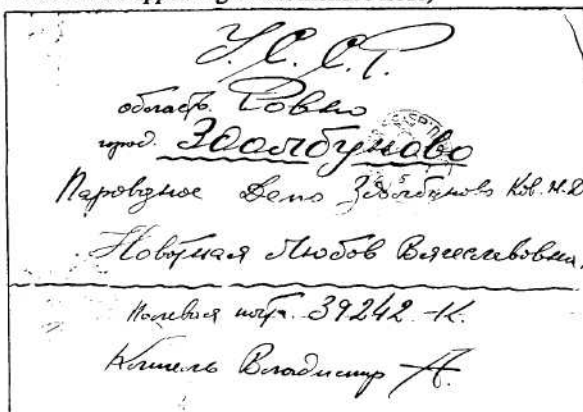 У.С.С.Р.
область. Ровно
город. Здолбуново
Паровозное Депо Здолбуново Ков. Ж.Д.
Новотная Любов Вячеславовна.
Полевая почта. 39242-К.
Владимир А.